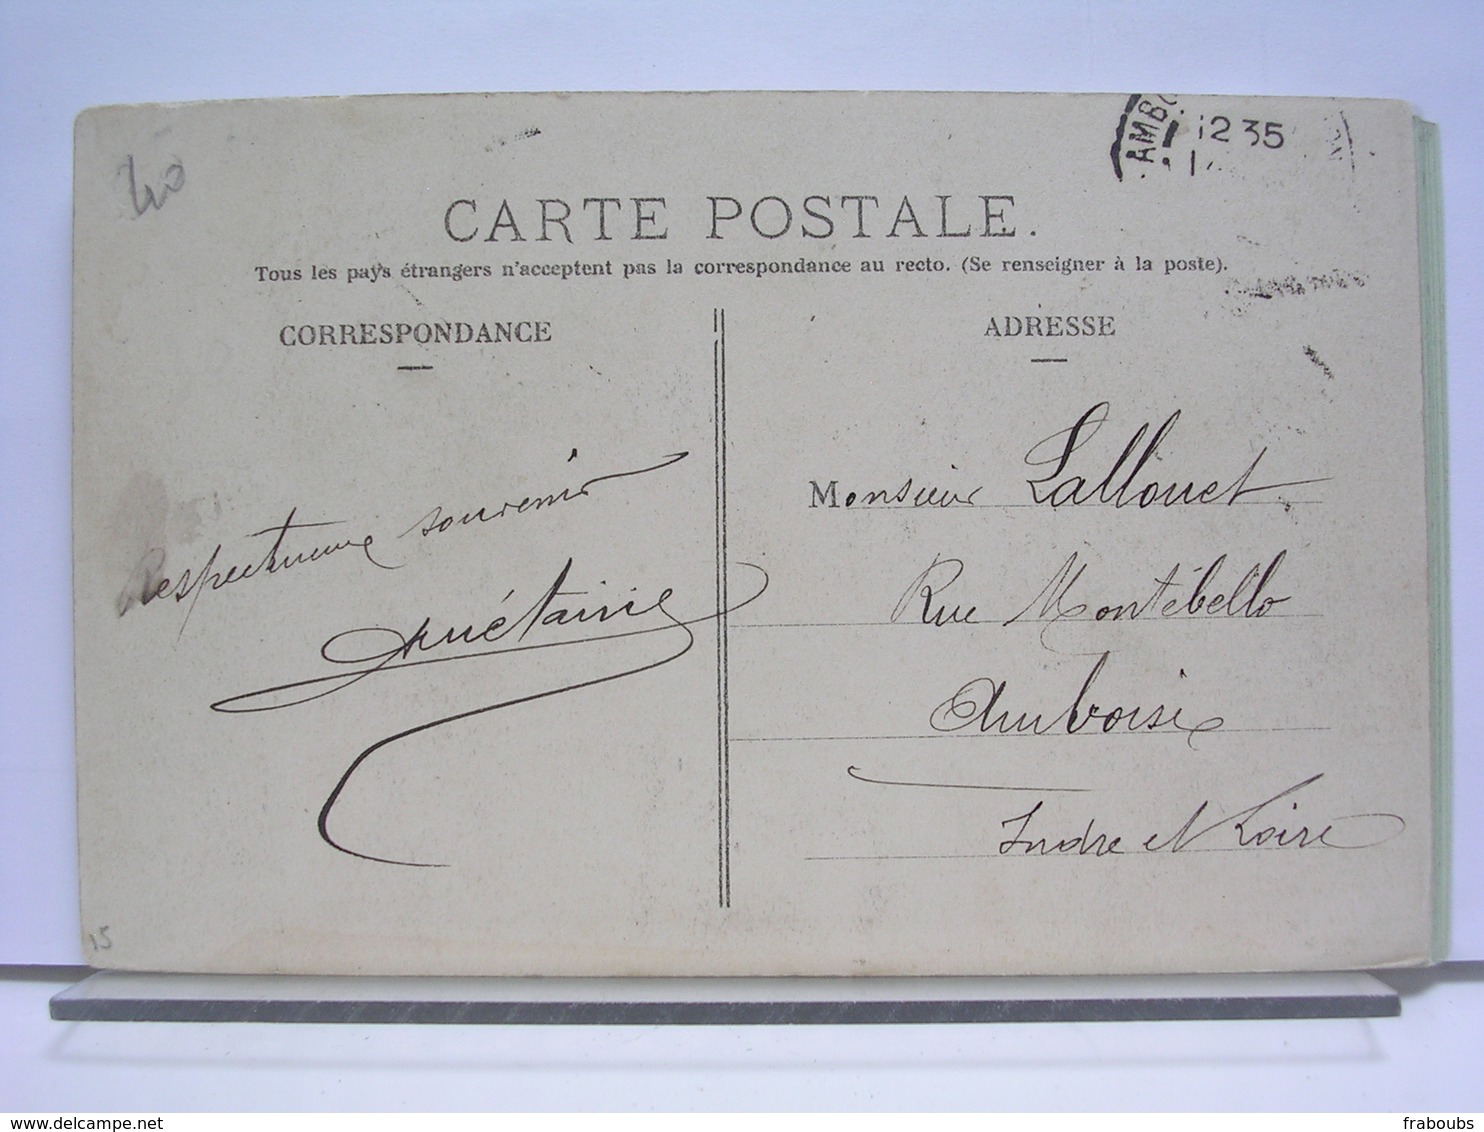 40
AMBO
12 35
CARTE POSTALE.
Tous les pays étrangers n'acceptent pas la correspondance au recto. (Se renseigner à la poste).
CORRESPONDANCE
ADRESSE
Respectueux souvenir
Guétaine
Monsieur Lallouet
Rue Montébello
Amboise
Indre et Loire
15
www.delcampe.net
fraboubs